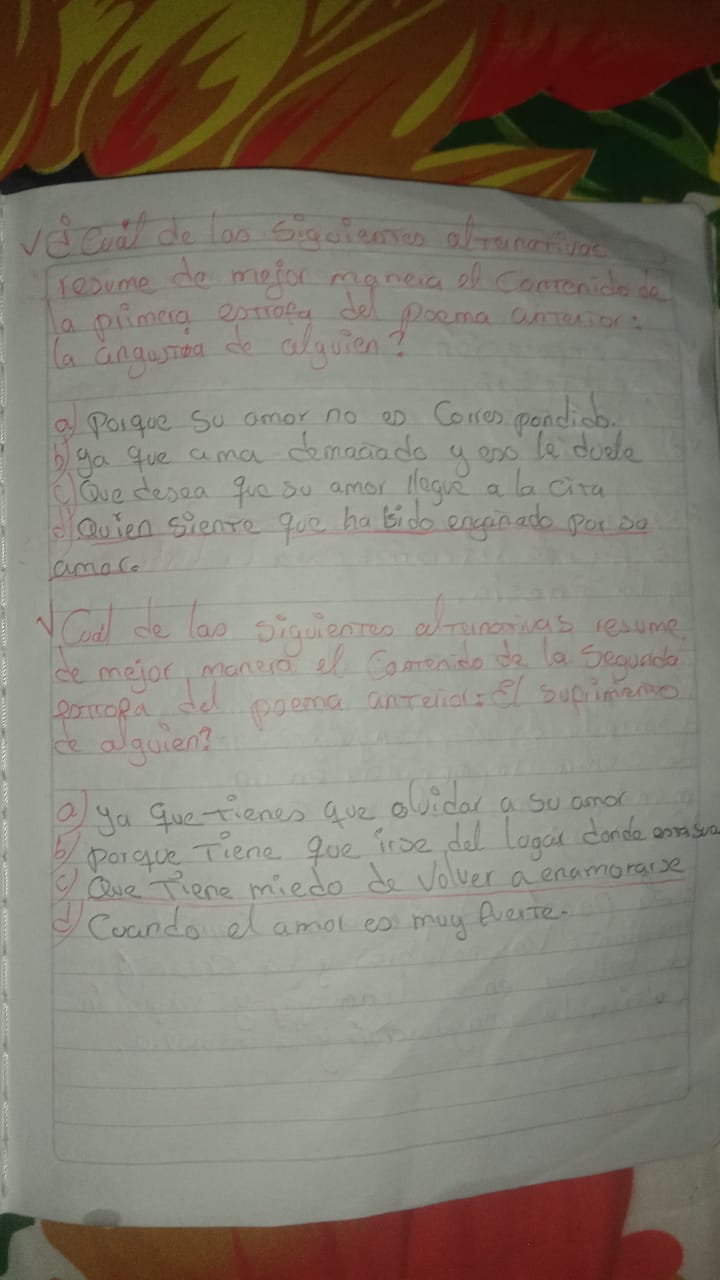 √ ¿Cuál de las siguientes alternativas
resume de mejor manera el Contenido de
la primera estrofa del poema anterior:
la angustia de alguien?
a) Porque su amor no es Corres pondido.
b) ya que ama demaciado y eso le duele
c) Que desea que su amor llegue a la cita
d) Quien siente que ha sido engañado por su
amor.
√ Cuál de las siguientes alternativas resume
de mejor manera el Contenido de la Segunda
estrofa del poema anterior: El suprimento
de alguien?
a) ya que tienes que olvidar a su amor
b) porque Tiene que irse del lugar donde
c) Que Tiene miedo de Volver a enamorarse
d) Cuando el amor es muy fuerte.